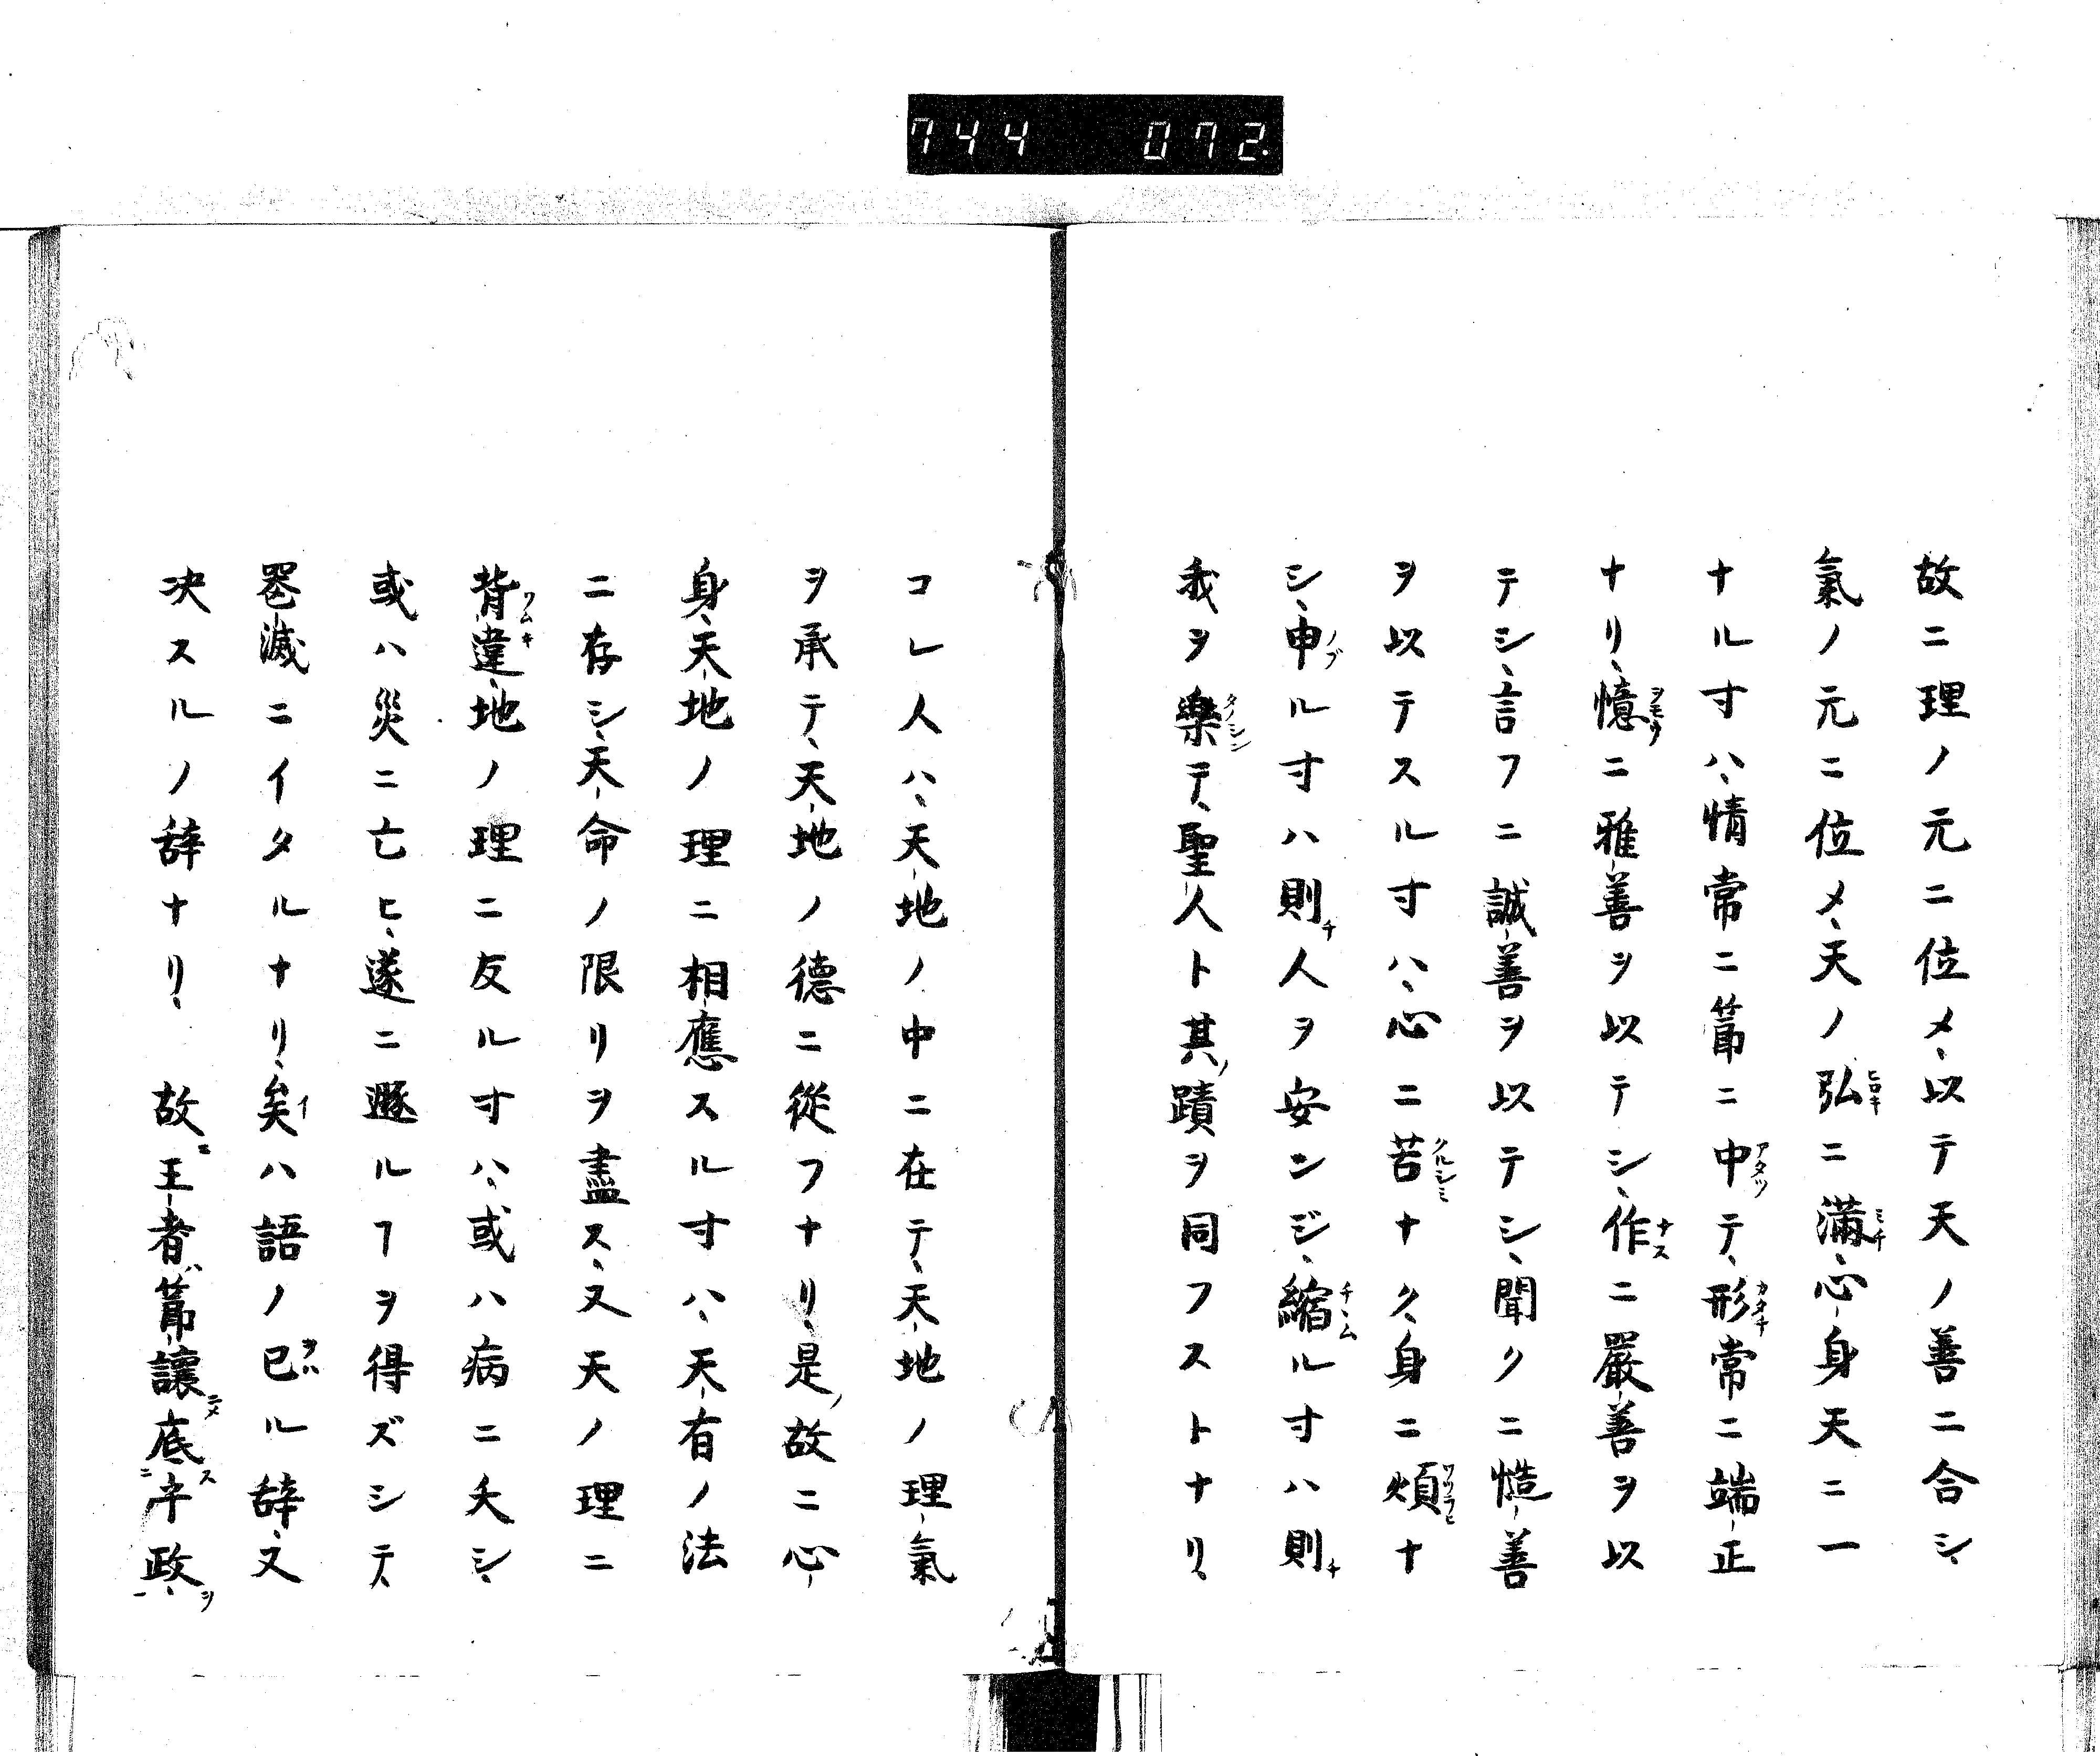 744 072.
故ニ理ノ元ニ位メ、以テ天ノ善ニ合シ、
氣ノ元ニ位メ、天ノ弘ニ滿、心身天ニ一
ナル寸ハ、情常ニ節ニ中テ、形常ニ端正
ナリ、憶ニ雅善ヲ以テシ、作ニ嚴善ヲ以
テシ、言フニ誠善ヲ以テシ、聞クニ慥善
ヲ以テスル寸ハ、心ニ苦ナク、身ニ煩ナ
シ、申ル寸ハ則人ヲ安ンジ、縮ル寸ハ則
我ヲ樂テ、聖人ト其蹟ヲ同フストナリ、
コレ人ハ、天地ノ中ニ在テ、天地ノ理氣
ヲ承テ、天地ノ德ニ從フナリ、是故ニ心
身、天地ノ理ニ相應スル寸ハ、天有ノ法
ニ存シ、天命ノ限リヲ盡ス、又天ノ理ニ
背違、地ノ理ニ反ル寸ハ、或ハ病ニ夭シ、
或ハ災ニ亡ヒ、遂ニ遯ルヿヲ得ズシテ、
滅ニイタルナリ、矣ハ語ノ已ル辞、又
决スルノ辞ナリ、 故王者節讓底平政、